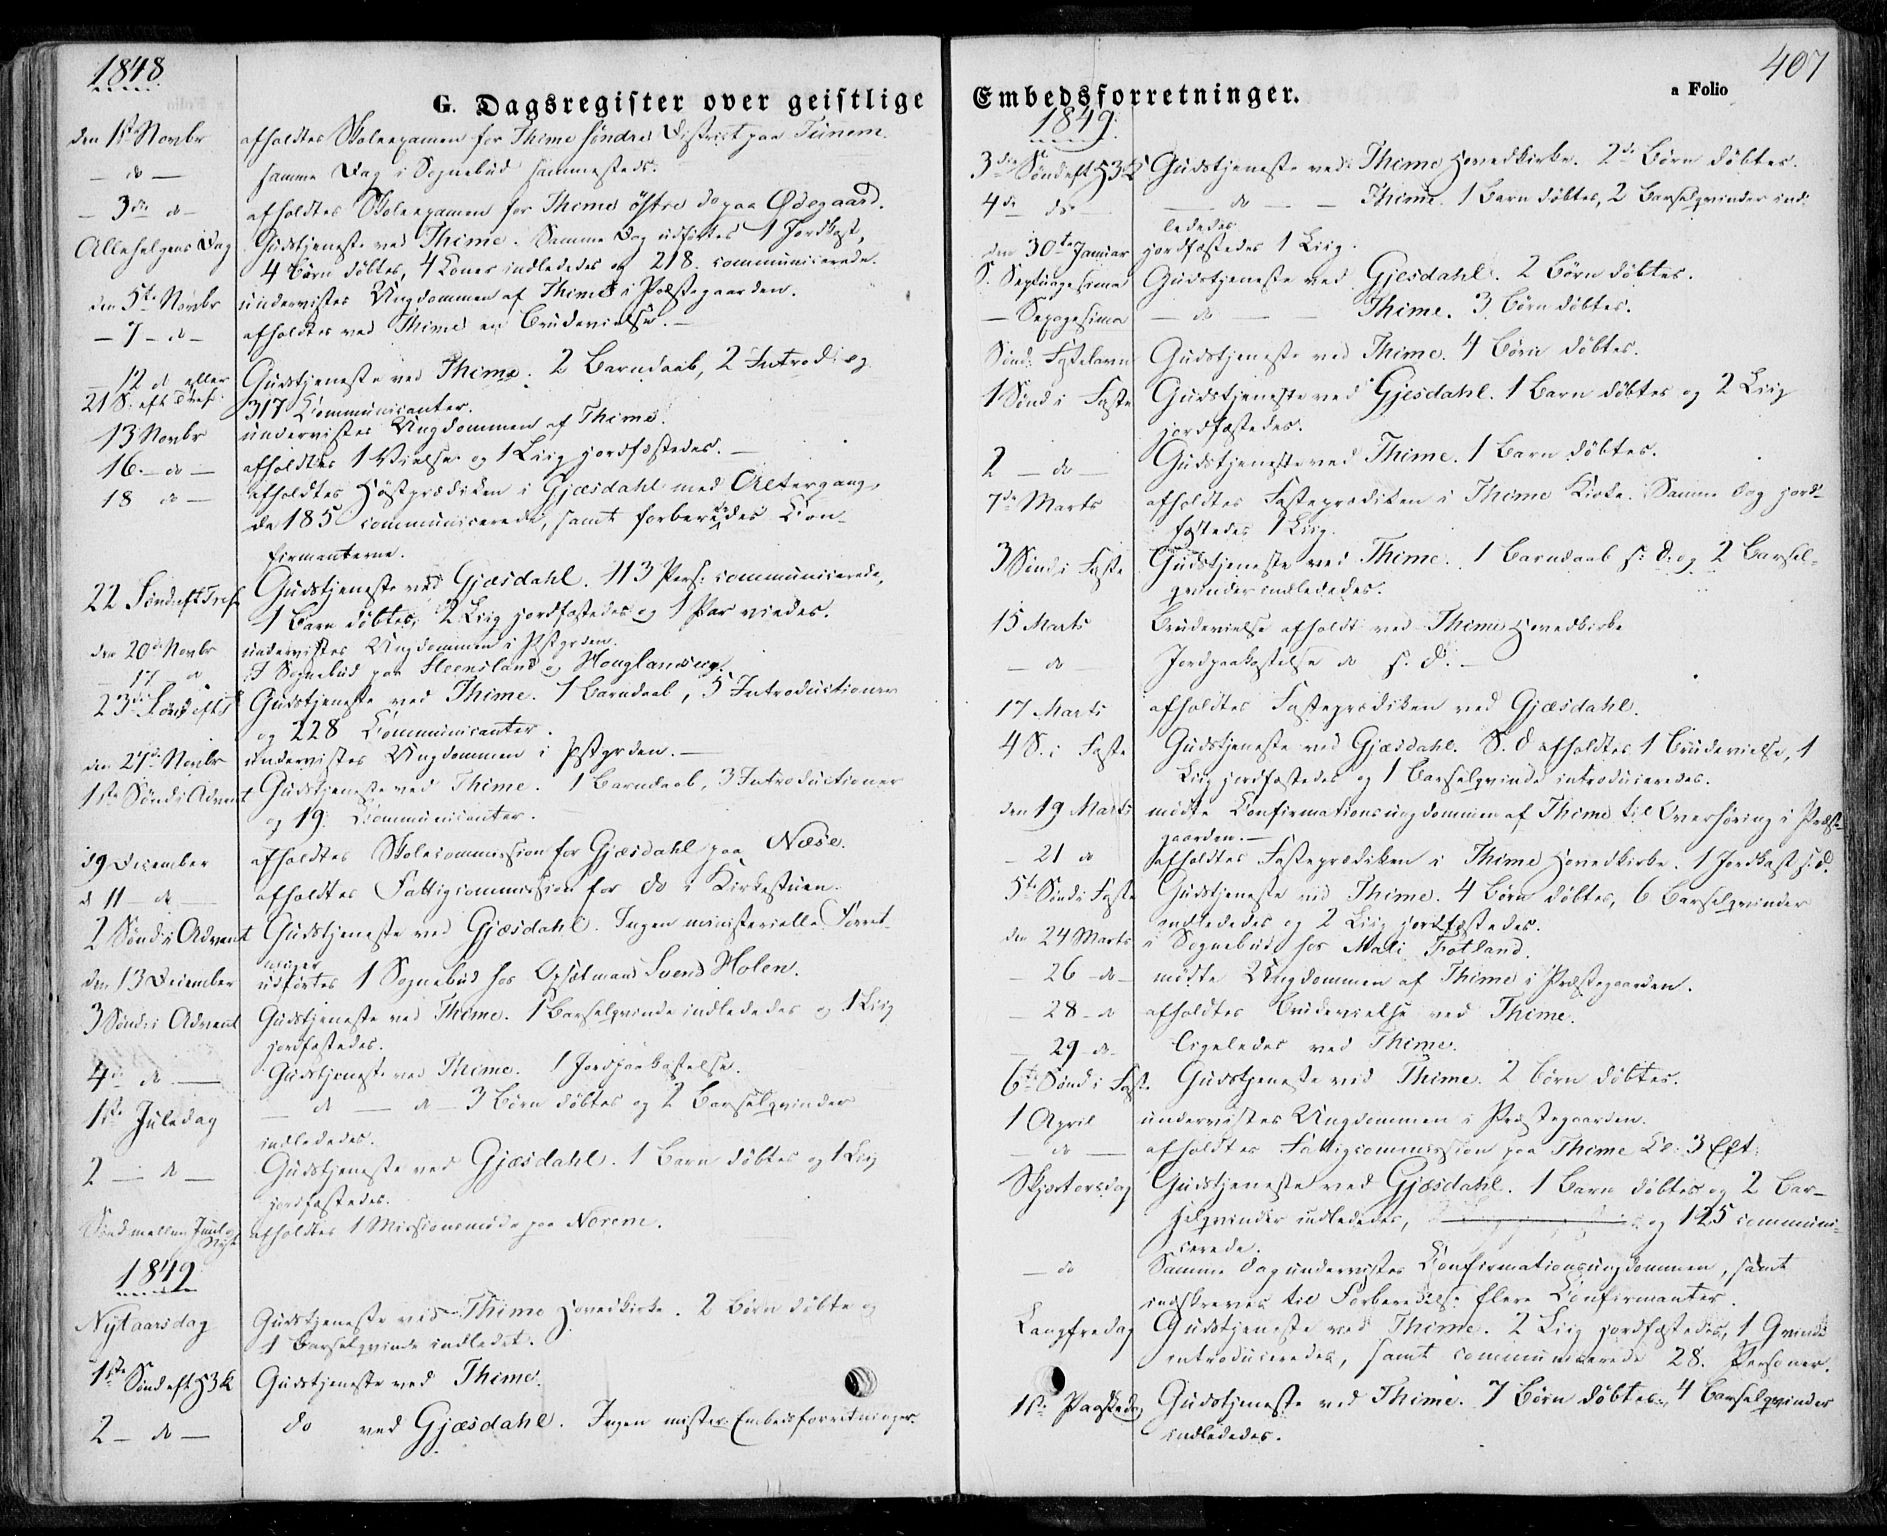 1848
G. Dagsregister over geistlige
den 1st Novbr afholdtes Skoleexamen for Thime søndre District paa Tunem.
— do — samme Dag i Sognebud sammesteds.
— 3die do — afholdtes Skoleexamen for Thime østre do paa Ødegaard.
Allehelgens Dag Gudstjeneste ved Thime. Samme Dag udførtes 1 Jordkast,
4 Børn døbtes, 4 Koner indlededes og 218 communicerede.
den 5te Novbr undervistes Ungdommen af Thime i Præstegaarden.
— 7 — do — afholdtes ved Thime en Brudevielse. —
— 12 d eller Gudstjeneste ved Thime. 2 Barndaab, 2 Introd: og
21 S. eft Tref. 317 Communicanter.
13 Novbr undervistes Ungdommen af Thime.
16 — do — afholdtes 1 Vielse og 1 Liig jordfæstedes. —
18 do — afholdtes Høstprædiken i Gjæsdahl med Altergang,
da 185 communicerede, samt forberededes Con-
firmanterne.
22 Søndeft Tref Gudstjeneste ved Gjæsdahl. 113 Pers: communicerede,
1 Barn døbtes, 2 Liig jordfæstedes og 1 Par viedes.
den 20de Novbr undervistes Ungdommen i Pstgrden.
— 17 d I Sognebud paa Steensland og Houglandsug.
23de Søndeft T Gudstjeneste ved Thime. 1 Barndaab, 5 Introductioner
og 228 Communicanter.
den 27de Novbr undervistes Ungdommen i Pstgrden. —
1ste Sønd i Advent Gudstjeneste ved Thime. 1 Barndaab, 3 Introductioner
og 19 Communicanter.
d 9 December afholdtes Skolecommission for Gjæsdahl paa Næse.
d 11 — do — afholdtes Fattigcommission for do i Kirkestuen.
2 Sønd i Advent Gudstjeneste ved Gjæsdahl. Ingen ministerielle Forret-
ninger
den 13 December udførtes 1 Sognebud hos Opsitmand Svend Holen.
3 Sønd: i Advent Gudstjeneste ved Thime. 1 Barselqvinde indlededes og 1 Liig
jordfæstedes.
4de do — Gudstjeneste ved Thime. 1 Jordpaakastelse.
1ste Juledag — do — do — 3 Børn døbtes og 2 Barselqvinder
indlededes.
2 — do — Gudstjeneste ved Gjæsdahl. 1 Barn døbtes og 1 Liig
jordfæstedes.
Sønd mellem Juul og Nyt afholdtes 1 Missionsmøde paa Norem.
1849
Nytaarsdag Gudstjeneste ved Thime Hovedkirke. 2 Børn døbte og
1 Barselqvinde indledet.
1ste Søndeft H3K Gudstjeneste ved Thime.
2 — do — do ved Gjæsdahl. Ingen minister Embedsforretninger.
407
Embedsforretninger.
a Folio
1849.
3die Søndeft H3K Gudstjeneste ved Thime Hovedkirke. 2de Børn døbtes.
4de do — do — — Thime. 1 Barn døbtes, 2 Barselqvinder ind-
lededes
den 30te Januar jordfæstedes 1 Liig.
S. Septuagesima Gudstjeneste ved Gjesdahl. 2 Børn døbtes.
— Sexagesima — do — — Thime. 3 Børn døbtes.
Sønd: Fastelavn Gudstjeneste ved Thime. 4 Børn døbtes.
1 Sønd i Faste Gudstjeneste ved Gjesdahl. 1 Barn døbtes og 2 Liig
jordfæstedes.
2 — do — Gudstjeneste ved Thime. 1 Barn døbtes.
7de Marts afholdtes Fasteprædiken i Thime Kirke. Samme Dag jord-
fæstedes 1 Liig.
3 Sønd i Faste Gudstjeneste ved Thime. 1 Barndaab s: d. og 2 Barsel-
qvinder indlededes.
15 Marts Brudevielse afholdt ved Thime Hovedkirke
— do — Jordpaakastelse do s. d. —
17 Marts afholdtes Fasteprædiken ved Gjæsdahl.
4 S. i Faste Gudstjeneste ved Gjæsdahl. S. d afholdtes 1 Brudevielse, 1
Liig jordfæstedes og 1 Barselqvinde introduceredes.
den 19 Marts mødte Confirmationsungdommen af Thime til Overhøring i Præste-
gaarden. —
— 21 do afholdtes Fasteprædiken i Thime Hovedkirke. 1 Jordkast s. d.
5te Sønd i Faste Gudstjeneste ved Thime. 4 Børn døbtes, 6 Barselqvinder
indlededes og 2 Liig jordfæstedes.
den 24 Marts i Sognebud hos Mali Fotland.
— 26 — do — mødte Ungdommen af Thime i Præstegaarden.
— 28 — do afholdtes Brudevielse ved Thime.
— 29 — do — ligeledes ved Thime.
6te Sønd i Faste Gudstjeneste ved Thime. 2 Børn døbtes.
1 April undervistes Ungdommen i Præstegaarden.
— do — afholdtes Fattigcommission paa Thime Kl: 3 Eft:
Skjærtorsdag Gudstjeneste ved Gjæsdahl. 1 Barn døbtes og 2 Bar-
selqvinder indlededes, og 125 communi-
cerede.
— do Samme Dag undervistes Confirmationsungdommen, samt
indskreves til Forberedelse flere Confirmanter.
Langfredag Gudstjeneste ved Thime. 2 Liig jordfæstedes, 1 Qvinde
introduceredes, samt communicerede 28. Personer.
1ste Paaskedag Gudstjeneste ved Thime. 7 Børn døbtes, 4 Barselqvinder
indlededes.